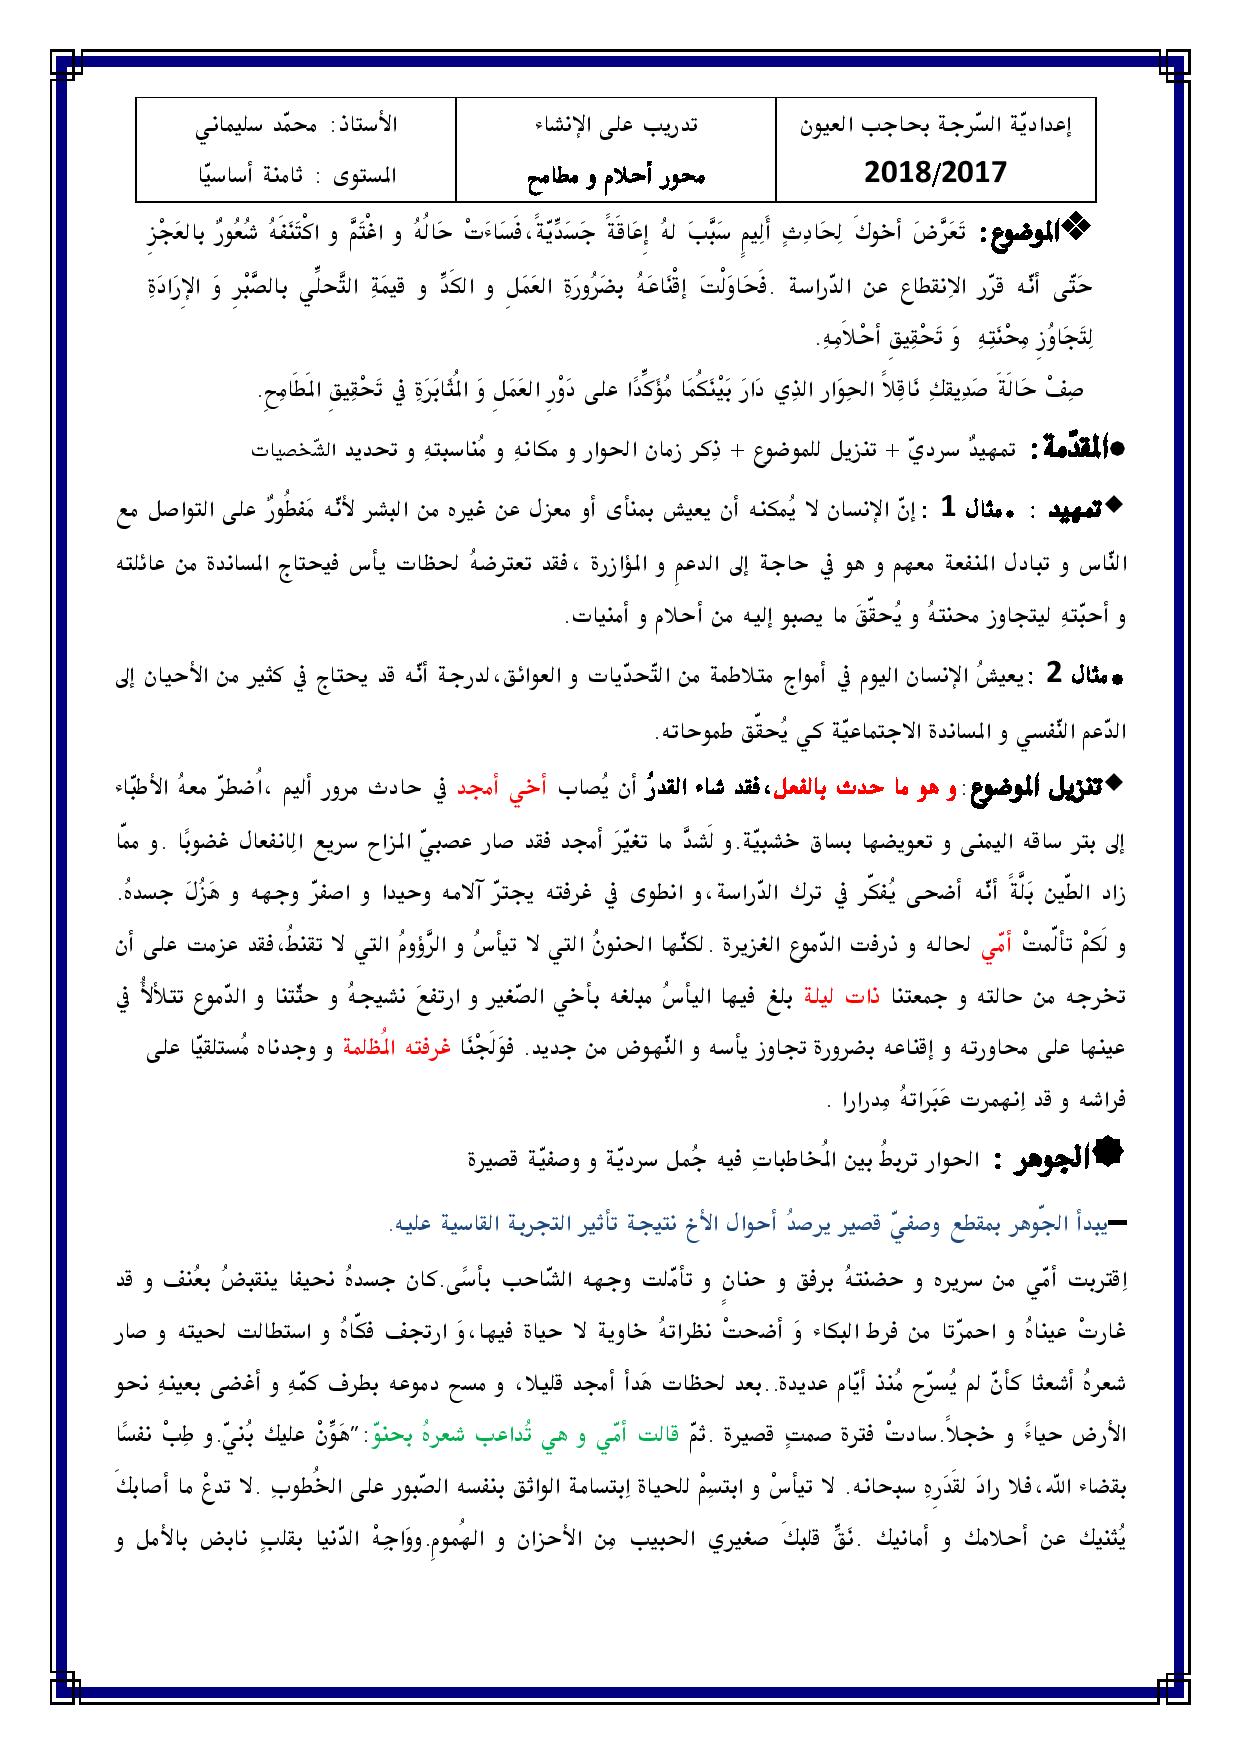 إعداديّة السّرجة بحاجب العيون
2018/2017
تدريب على الإنشاء
محور أحلام و مطامح
الأستاذ: محمّد سليماني
المستوى : ثامنة أساسيّا
❖الموضوع: تَعَرَّضَ أخوكَ لِحَادِثٍ أَلِيمٍ سَبَّبَ لهُ إعَاقَةً جَسَدِّيّةً،فَسَاءَتْ حَالُهُ و اغْتَمَّ و اكْتَنَفَهُ شُعُورٌ بالعَجْزِ
حَتّى أنّه قرّر الاِنقطاع عن الدّراسة .فَحَاوَلْتَ إقْنَاعَهُ بضَرُورَةِ العَمَلِ و الكَدِّ و قيمَةِ التَّحلِّي بالصَّبْرِ وَ الإرَادَةِ
لِتَجَاوُزِ مِحْنَتِهِ وَ تَحْقِيقِ أحْلاَمِهِ.
صِفْ حَالَةَ صَدِيقكِ نَاقِلاً الحِوَار الذِي دَارَ بَيْنَكُمَا مُؤَكِّدًا على دَوْرِ العَمَلِ وَ المُثَابَرَةِ في تَحْقِيقِ المَطَامِحِ.
●المقدّمة: تمهيدٌ سرديّ + تنزيل للموضوع + ذِكر زمان الحوار و مكانهِ و مُناسبتهِ و تحديد الشّخصيات
◆تمهيد : •مثال 1 :إنّ الإنسان لا يُمكنه أن يعيش بمنأى أو معزل عن غيره من البشر لأنّه مَفطُورٌ على التواصل مع
النّاس و تبادل المنفعة معهم و هو في حاجة إلى الدعمِ و المؤازرة ،فقد تعترضهُ لحظات يأس فيحتاج المساندة من عائلته
و أحبّتهِ ليتجاوز محنتهُ و يُحقّقَ ما يصبو إليه من أحلام و أمنيات.
•مثال 2 :يعيشُ الإنسان اليوم في أمواج متلاطمة من التّحدّيات و العوائق،لدرجة أنّه قد يحتاج في كثير من الأحيان إلى
الدّعم النّفسي و المساندة الاجتماعيّة كي يُحقّق طموحاته.
◆تنزيل الموضوع:و هو ما حدث بالفعل،فقد شاء القدرُ أن يُصاب أخي أمجد في حادث مرور أليم ،اُضطرّ معهُ الأطبّاء
إلى بتر ساقه اليمنى و تعويضها بساق خشبيّة.و لَشدَّ ما تغيّرَ أمجد فقد صار عصبيّ المزاح سريع الاِنفعال غضوبًا .و ممّا
زاد الطّين بَلَّةً أنّه أضحى يُفكّر في ترك الدّراسة،و انطوى في غرفته يجترّ آلامه وحيدا و اصفرّ وجهه و هَزُلَ جسدهُ.
و لَكمْ تألّمتْ أمّي لحاله و ذرفت الدّموع الغزيرة .لكنّها الحنونُ التي لا تيأسُ و الرَّؤومُ التي لا تقنطُ،فقد عزمت على أن
تخرجه من حالته و جمعتنا ذات ليلة بلغ فيها اليأسُ مبلغه بأخي الصّغير و ارتفعَ نشيجهُ و حثّتنا و الدّموع تتلألأُ في
عينها على محاورته و إقناعه بضرورة تجاوز يأسه و النّهوض من جديد. فوَلَجْنَا غرفته المُظلمة و وجدناه مُستلقيّا على
فراشه و قد اِنهمرت عَبَراتهُ مِدرارا .
الجوهر : الحوار تربطُ بين المُخاطباتِ فيه جُمل سرديّة و وصفيّة قصيرة
–يبدأ الجّوهر بمقطع وصفيّ قصير يرصدُ أحوال الأخ نتيجة تأثير التجربة القاسية عليه.
اِقتربت أمّي من سريره و حضنتهُ برفق و حنانٍ و تأمّلت وجهه الشّاحب بأسًى.كان جسدهُ نحيفا ينقبضُ بعُنف و قد
غارتْ عيناهُ و احمرّتا من فرط البكاء وَ أضحتْ نظراتهُ خاوية لا حياة فيها،وَ ارتجف فكّاهُ و استطالت لحيته و صار
شعرهُ أشعثا كأنّ لم يُسرّح مُنذ أيّام عديدة..بعد لحظات هَدأ أمجد قليلا، و مسح دموعه بطرف كمّهِ و أغضى بعينهِ نحو
الأرض حياءً و خجلاً.سادتْ فترة صمتٍ قصيرة .ثمّ قالت أمّي و هي تُداعب شعرهُ بحنوّ:"هَوِّنْ عليك بُنيّ.و طِبْ نفسًا
بقضاء الله،فلا رادَ لقَدَرِهِ سبحانه. لا تيأسْ و ابتسِمْ للحياة اِبتسامة الواثق بنفسه الصّبور على الخُطوبِ .لا تدعْ ما أصابكَ
يُثنيك عن أحلامك و أمانيك .نَقِّ قلبكَ صغيري الحبيب مِن الأحزان و الهُمومِ.ووَاجِهْ الدّنيا بقلبٍ نابض بالأمل و